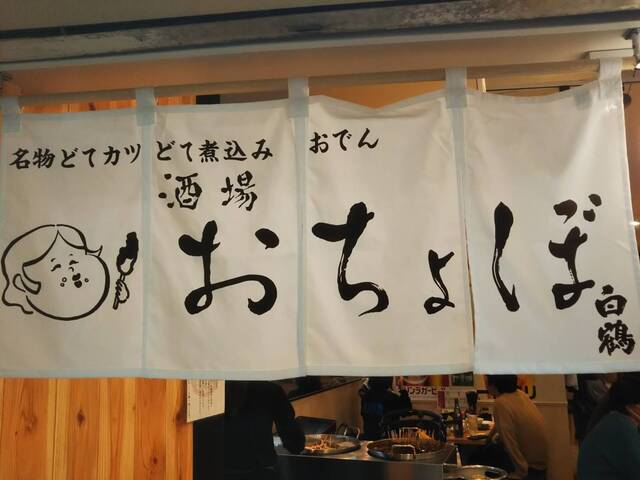 名物どてカツ どて煮込み おでん
酒場
おちょぼ
白鶴